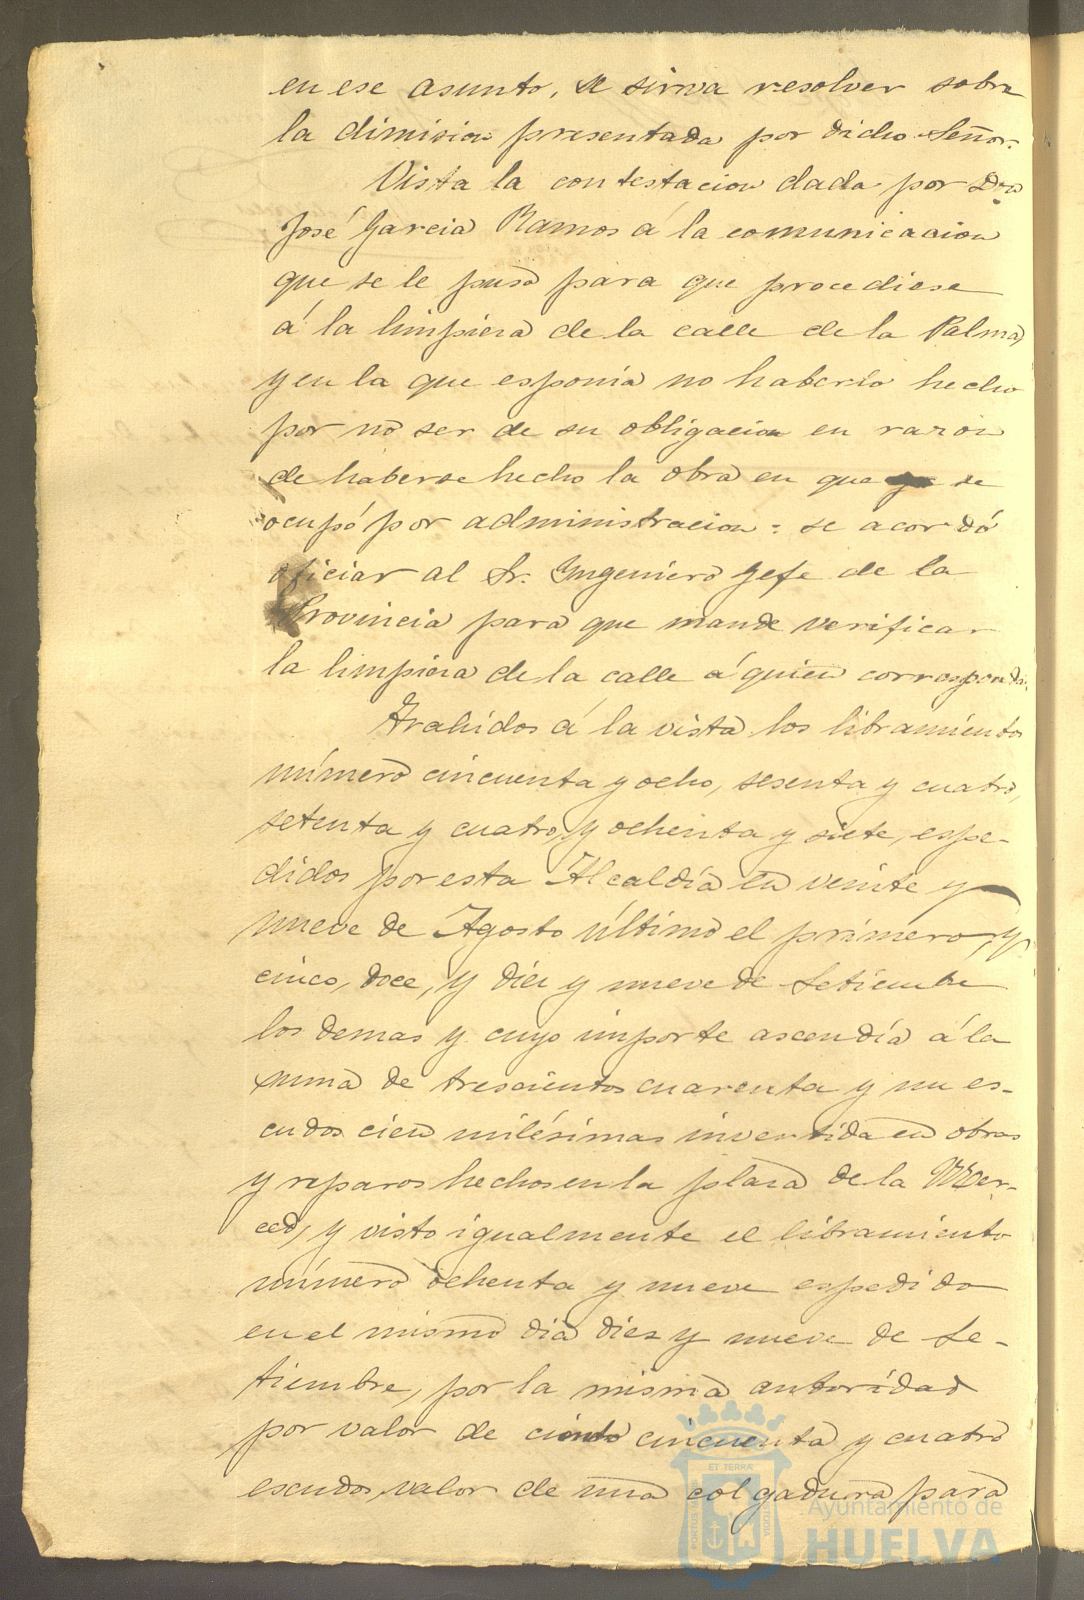 en ese asunto, se sirva resolver sobre
la dimision presentada por dicho Señor.
Vista la contestacion dada por Dn
José Garcia Ramos á la comunicacion
que se le puso para que procediese
á la limpieza de la calle de la Palma,
y en la que esponia no haberlo hecho
por no ser de su obligacion en razon
de haberse hecho la obra en que se
ocupó por administracion: se acordó
oficiar al Sr. Yngeniero Gefe de la
Provincia para que mande verificar
la limpieza de la calle á quien corresponda.
Trahidos á la vista los libramientos
número cincuenta y ocho, sesenta y cuatro,
setenta y cuatro, y ochenta y siete, espe-
didos por esta Alcaldía en veinte y
nueve de Agosto último el primero, y
cinco, doce, y diez y nueve de Setiembre
los demas y cuyo importe ascendía á la
suma de trescientos cuarenta y un es-
cudos cien milésimas invertida en obras
y reparos hechos en la plaza de la Mer-
ced, y visto igualmente el libramiento
número ochenta y nueve espedido
en el mismo dia diez y nueve de Se-
tiembre, por la misma autoridad
por valor de ciento cincuenta y cuatro
escudos, valor de una colgadura para
ET TERRA
Ayuntamiento de
HUELVA